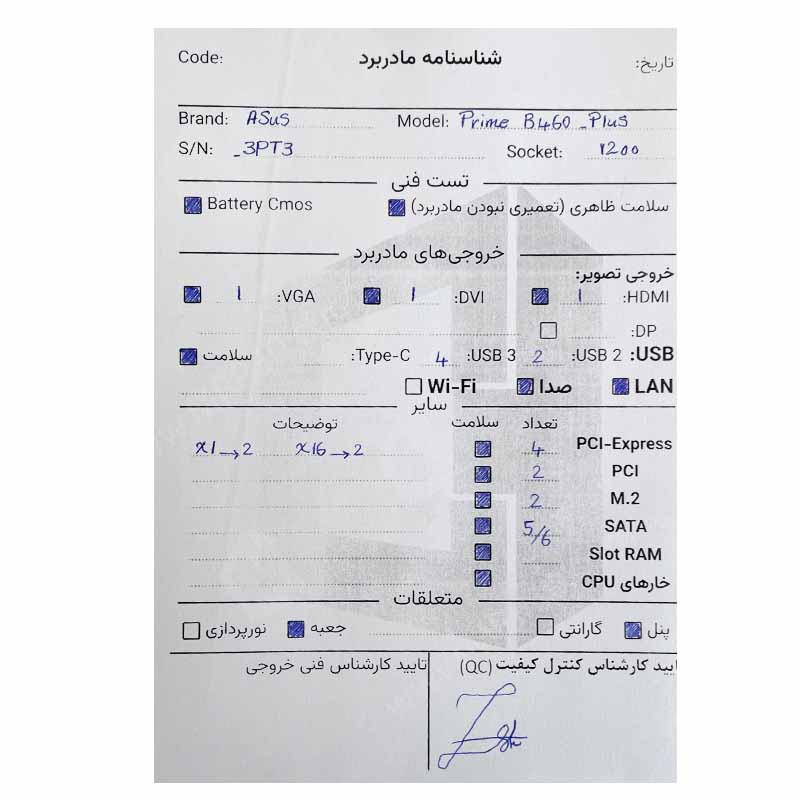 Code: شناسنامه مادربرد تاریخ:
Brand: ASUS Model: Prime B460_Plus
S/N: _3PT3 Socket: 1200
تست فنی
سلامت ظاهری (تعمیری نبودن مادربرد) Battery Cmos
خروجی‌های مادربرد
خروجی تصویر:
HDMI: 1 DVI: 1 VGA: 1
DP:
USB: USB 2: 2 USB 3: 4 Type-C: سلامت
LAN صدا Wi-Fi
سایر
تعداد سلامت توضیحات
PCI-Express 4 x16→2 x1→2
PCI 2
M.2 2
SATA 5/6
Slot RAM
خارهای CPU
متعلقات
پنل گارانتی جعبه نورپردازی
ایید کارشناس کنترل کیفیت (QC) تایید کارشناس فنی خروجی